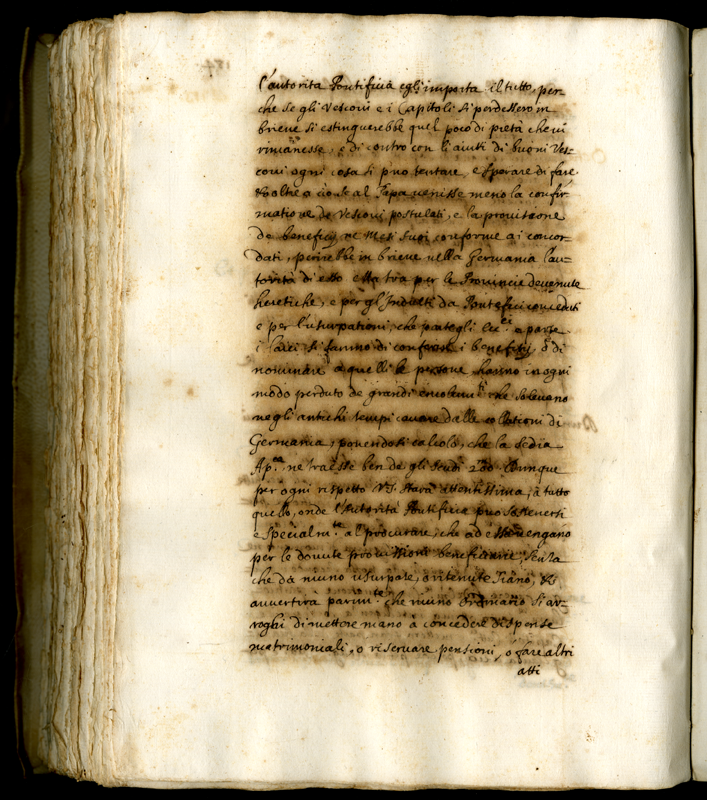 l'autorità Pontificia egli importa il tutto, per-
che se gli Vescovi e i Capitoli si perdessero in
brieve si estinguerebbe quel poco di pietà che vi
rimanesse, e di contro con li aiuti di buoni Ves-
covi ogni cosa si può tentare, e sperare di fare
oltre a ciò se al Papa venisse meno la confir-
matione de Vescovi postulati, e la provisione
de beneficij ne Mesi suoi conforme ai concor-
dati, perirebbe in brieve nella Germania l'au-
torità di esso
per le Provincie devenute
heretiche, e per gl'Indulti da Pontefici conceduti
e per l'usurpationi, che
i laici si fanno di conferire i beneficij, ò di
nominare à quelli le persone hanno in ogni
modo perduto de grandi emolum.ti che solevano
negli antichi tempi cavare dalle collationi di
Germania, ponendosi calcolo, che la Sedia
Ap.ca ne traesse ben da gli scudi 200
per ogni rispetto V.S. starà attentissima, à tutto
quello, onde l'Autorità Pontificia può sostenersi
e specialm.te al procurare, che ad essa vengano
per le dovute provissioni beneficiarie, senza
che da niuno usurpate, o ritenute siano, et
avvertirà parim.te che niuno Ordinario si ar-
roghi di mettere mano à concedere dispense
matrimoniali, o riservare pensioni, ò fare altri
atti